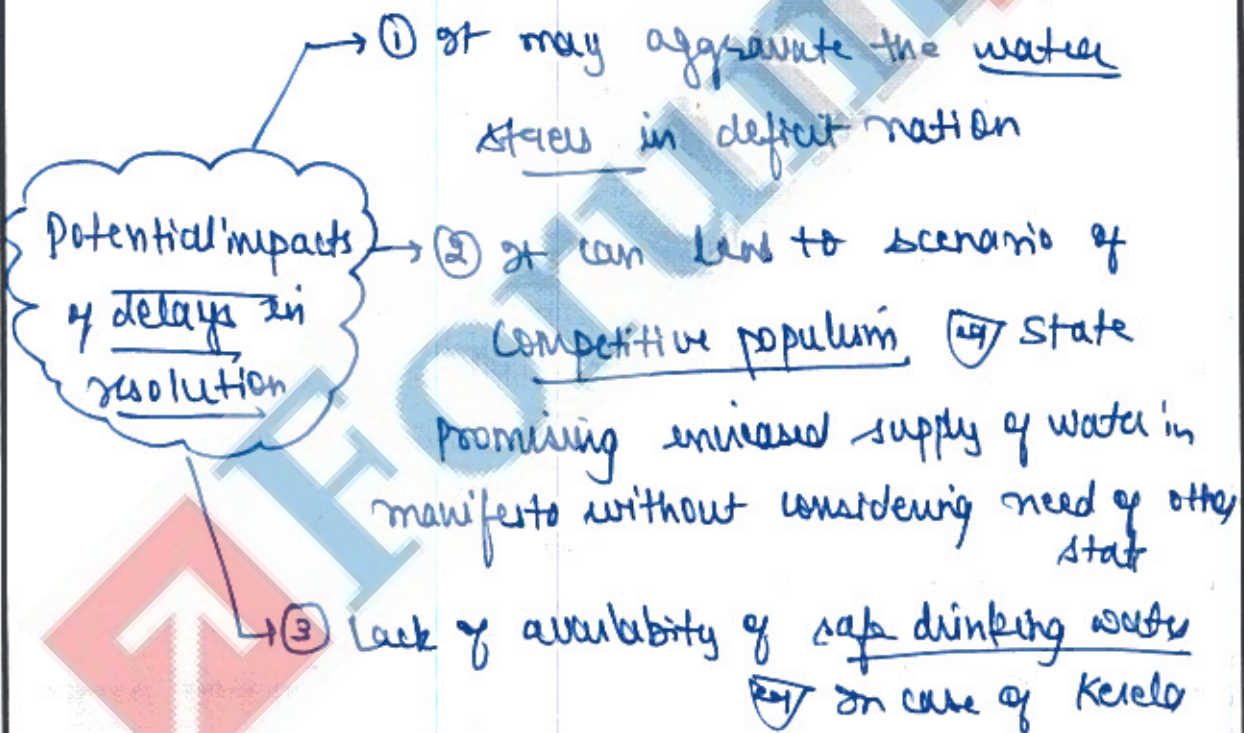 Potential impacts
of delays in
resolution
→ ① It may aggravate the water
stress in deficit nation
→ ② It can lead to scenario of
competitive populism eg State
promising increased supply of water in
manifesto without considering need of other
state
→ ③ Lack of availability of safe drinking water
eg In case of Kerela
Forum